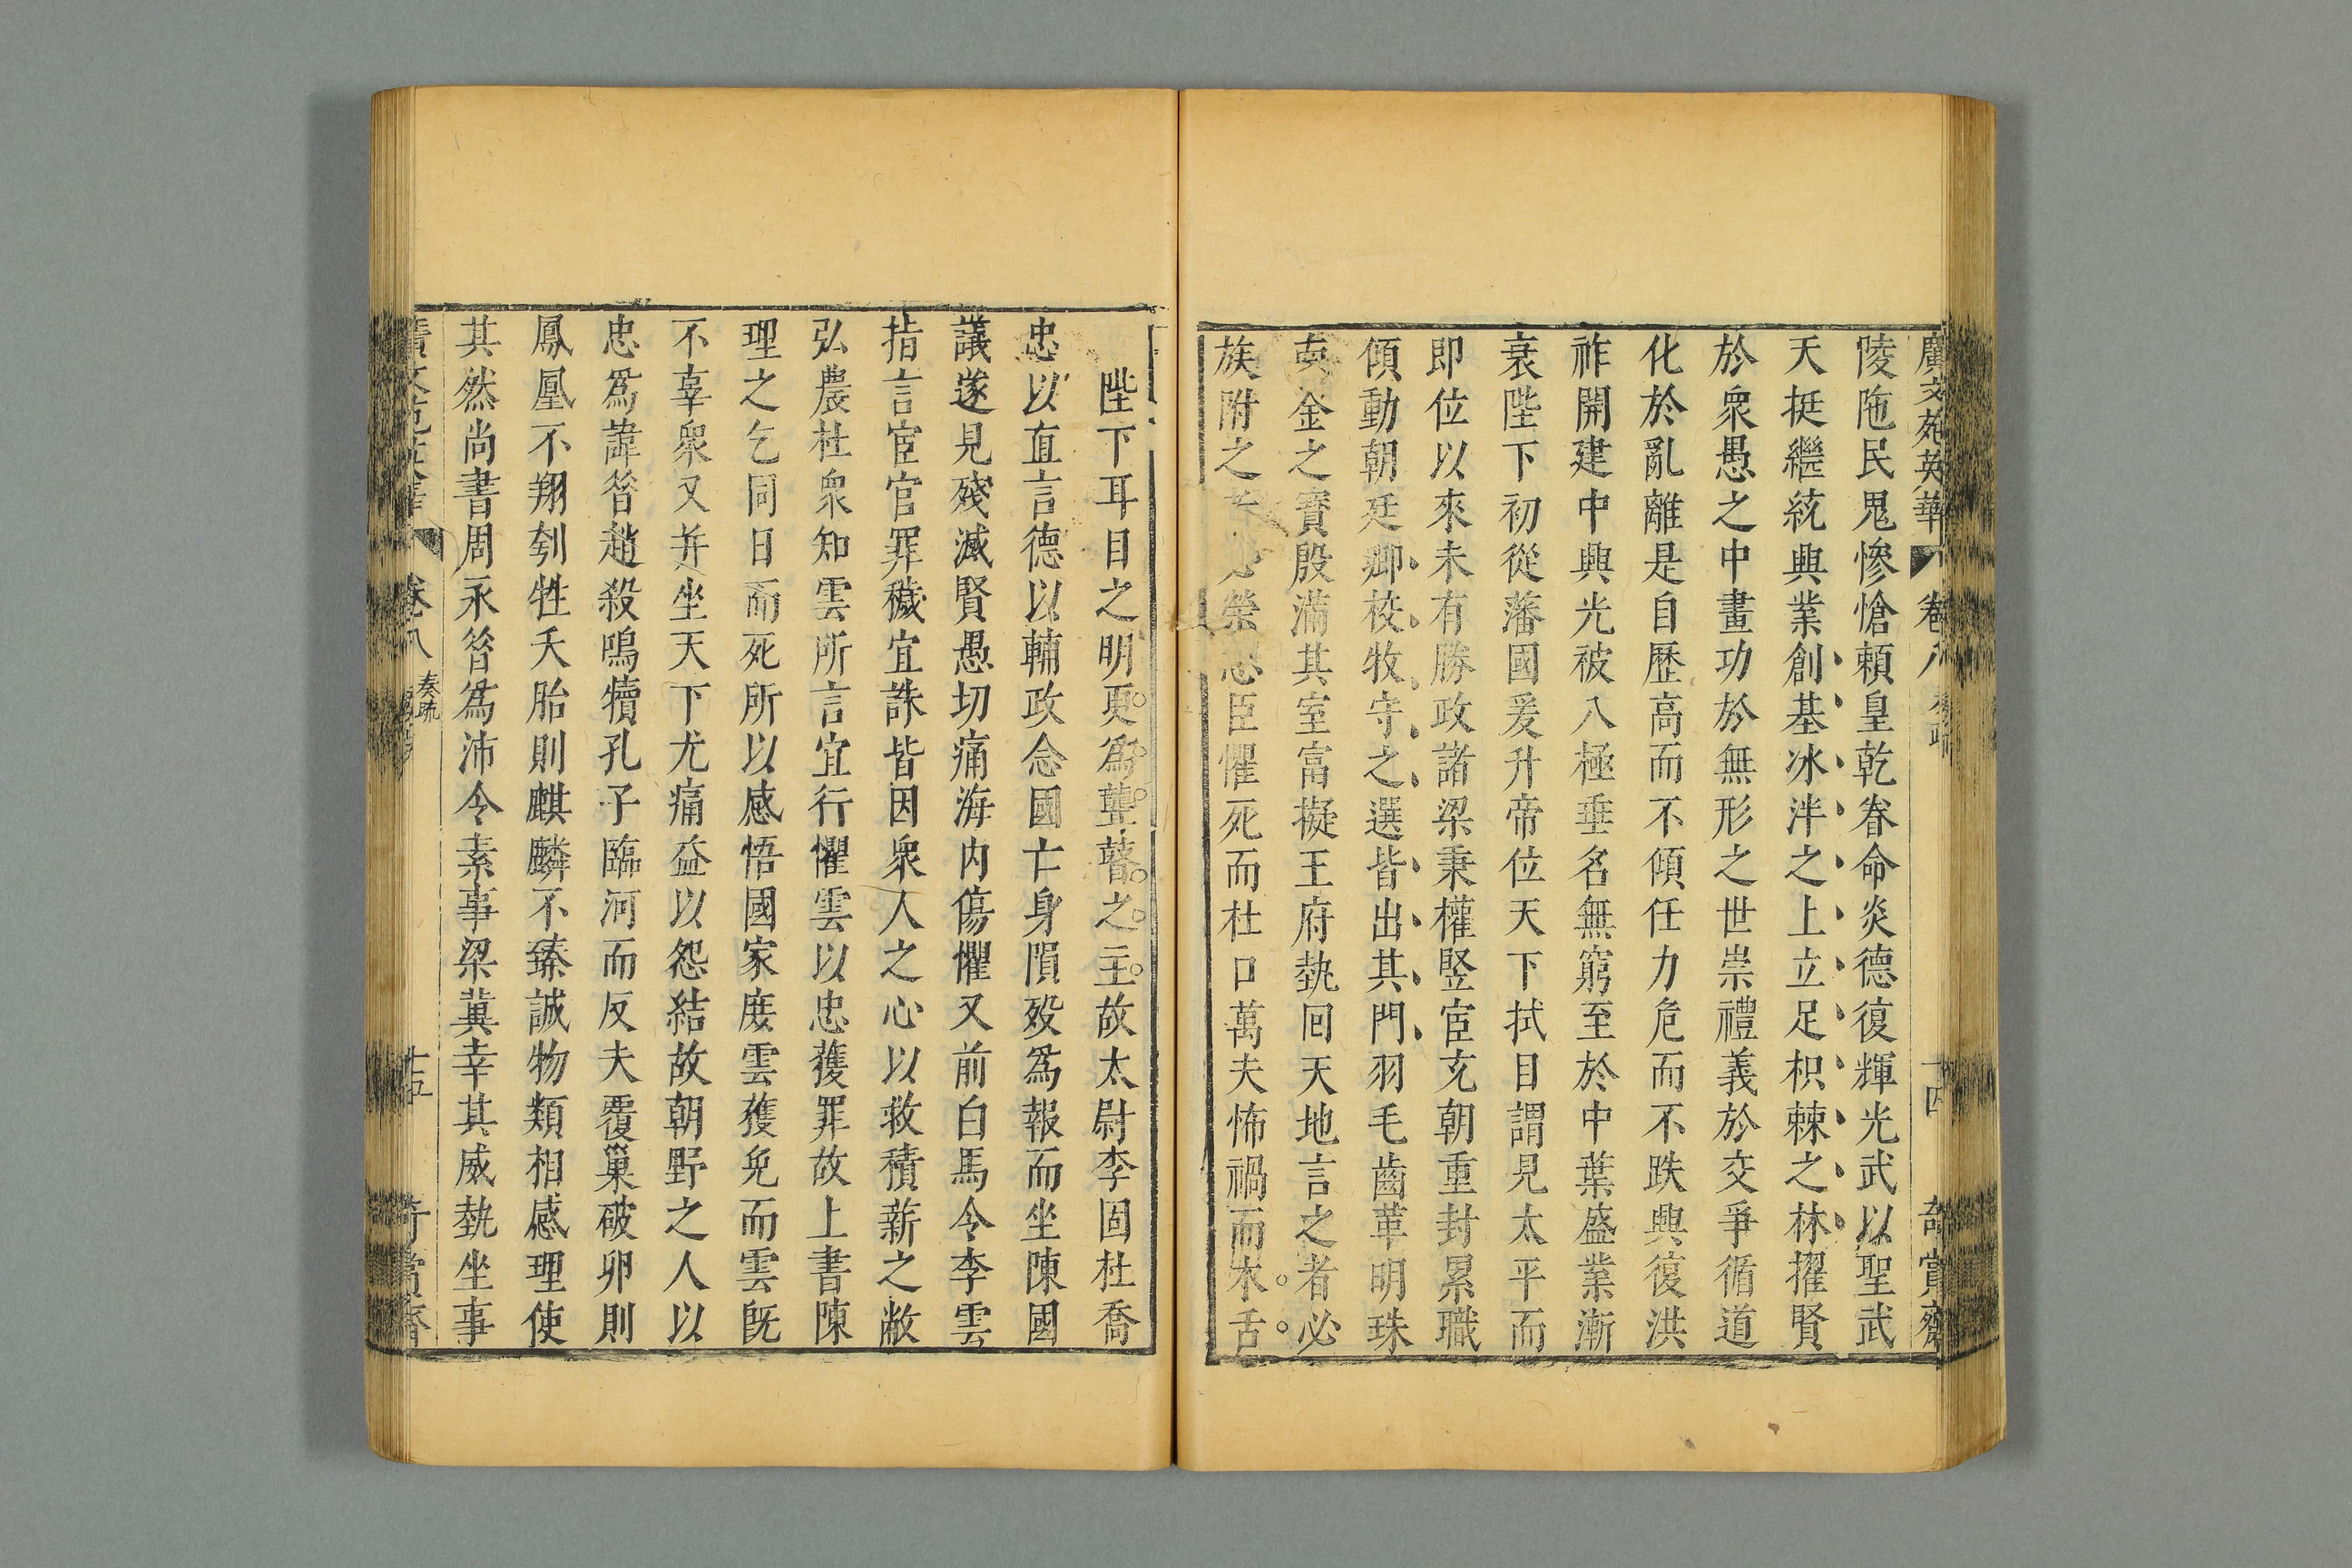 廣文苑英華 卷八 奏疏 十四 奇賞齋
陵陁民鬼慘愴頼皇乾眷命炎德復輝光武以聖武
天挺繼統興業創基冰泮之上立足枳棘之林擢賢
於衆愚之中畫功於無形之世崇禮義於交爭循道
化於亂離是自歷高而不傾任力危而不跌興復洪
祚開建中興光被八極垂名無窮至於中葉盛業漸
衰陛下初從藩國爰升帝位天下拭目謂見太平而
即位以來未有勝政諸梁秉權竪宦充朝重封累職
傾動朝廷卿校牧守之選皆出其門羽毛齒革明珠
南金之寳殷滿其室富擬王府埶囘天地言之者必
族附之者必榮忠臣懼死而杜口萬夫怖禍而木舌
陛下耳目之明更爲聾瞽之主故太尉李固杜喬
忠以直言德以輔政念國亡身隕歿爲報而坐陳國
議遂見殘滅賢愚切痛海内傷懼又前白馬令李雲
指言宦官罪穢宜誅皆因衆人之心以救積薪之敝
弘農杜衆知雲所言宜行懼雲以忠獲罪故上書陳
理之乞同日而死所以感悟國家庻雲獲免而雲旣
不辜衆又并坐天下尤痛益以怨結故朝野之人以
忠爲諱昝趙殺鳴犢孔子臨河而反夫覆巢破卵則
鳳凰不翔刳牲夭胎則麒麟不臻誠物類相感理使
其然尚書周永昝爲沛令素事梁冀幸其威埶坐事
卷八 奏疏 十五 奇賞齋